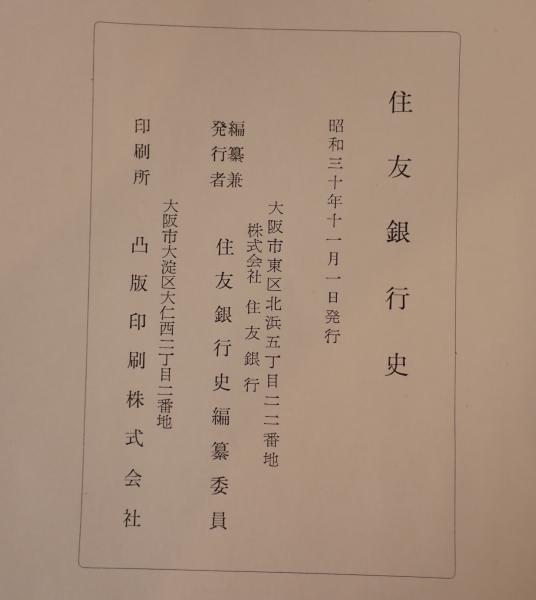 住友銀行史
昭和三十年十一月一日発行
大阪市東区北浜五丁目二二番地
株式会社 住友銀行
編纂兼
発行者 住友銀行史編纂委員
大阪市大淀区大仁西二丁目二番地
印刷所 凸版印刷株式会社